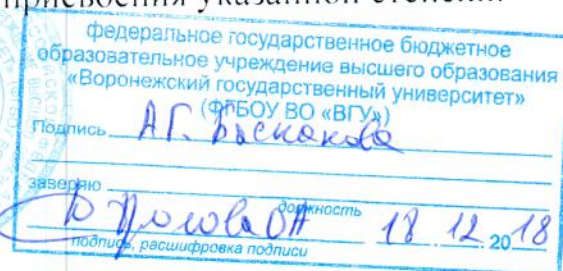 присвоения указанной степени.
федеральное государственное бюджетное
образовательное учреждение высшего образования
«Воронежский государственный университет»
(ФГБОУ ВО «ВГУ»)
Подпись А.Г.
заверяю
должность
18 12 2018
подпись, расшифровка подписи